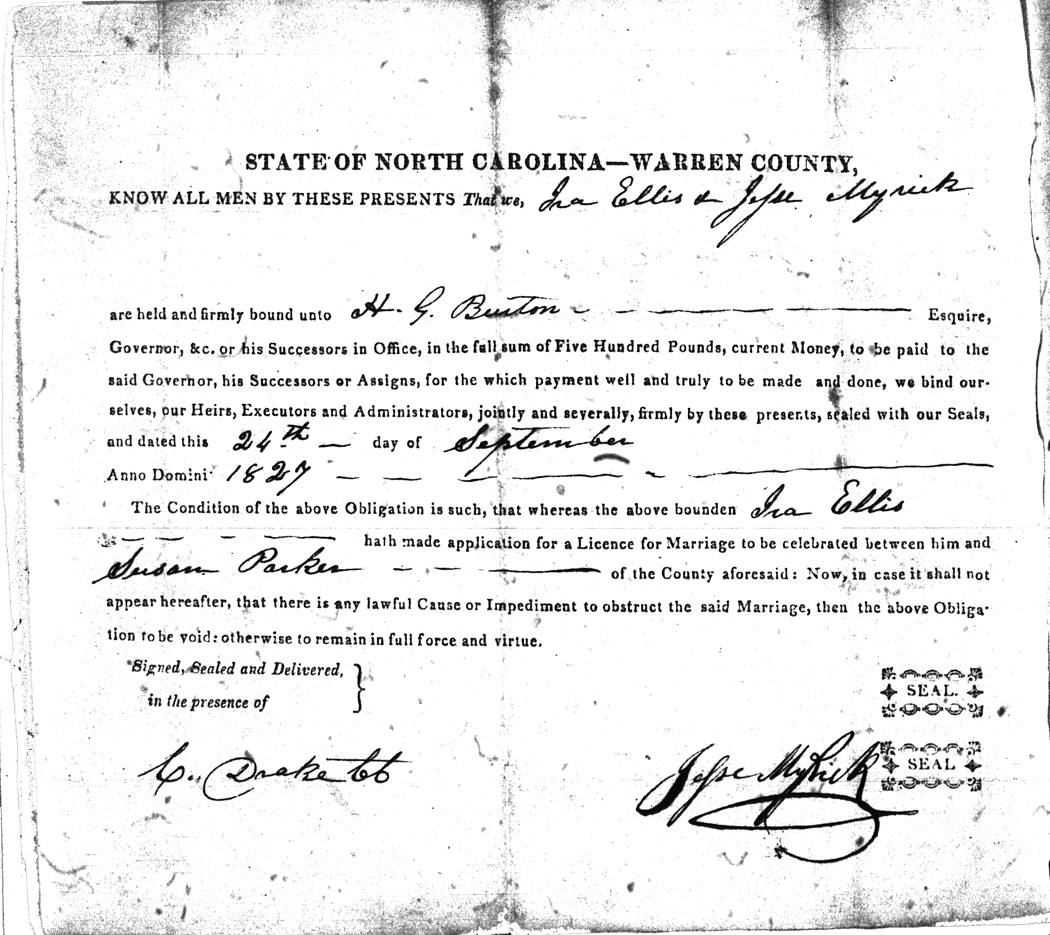 STATE OF NORTH CAROLINA—WARREN COUNTY,
KNOW ALL MEN BY THESE PRESENTS That we, Ira Ellis & Jesse Myrick
are held and firmly bound unto H. G. Burton — — — Esquire,
Governor, &c. or his Successors in Office, in the full sum of Five Hundred Pounds, current Money, to be paid to the
said Governor, his Successors or Assigns, for the which payment well and truly to be made and done, we bind our-
selves, our Heirs, Executors and Administrators, jointly and severally, firmly by these presents, sealed with our Seals,
and dated this 24th — day of September
Anno Domini 1827 — — — — —
The Condition of the above Obligation is such, that whereas the above bounden Ira Ellis
— — — — hath made application for a Licence for Marriage to be celebrated between him and
Susan Parker — — — of the County aforesaid: Now, in case it shall not
appear hereafter, that there is any lawful Cause or Impediment to obstruct the said Marriage, then the above Obliga-
tion to be void: otherwise to remain in full force and virtue.
Signed, Sealed and Delivered,
in the presence of
SEAL.
C. Drake
Jesse Myrick SEAL